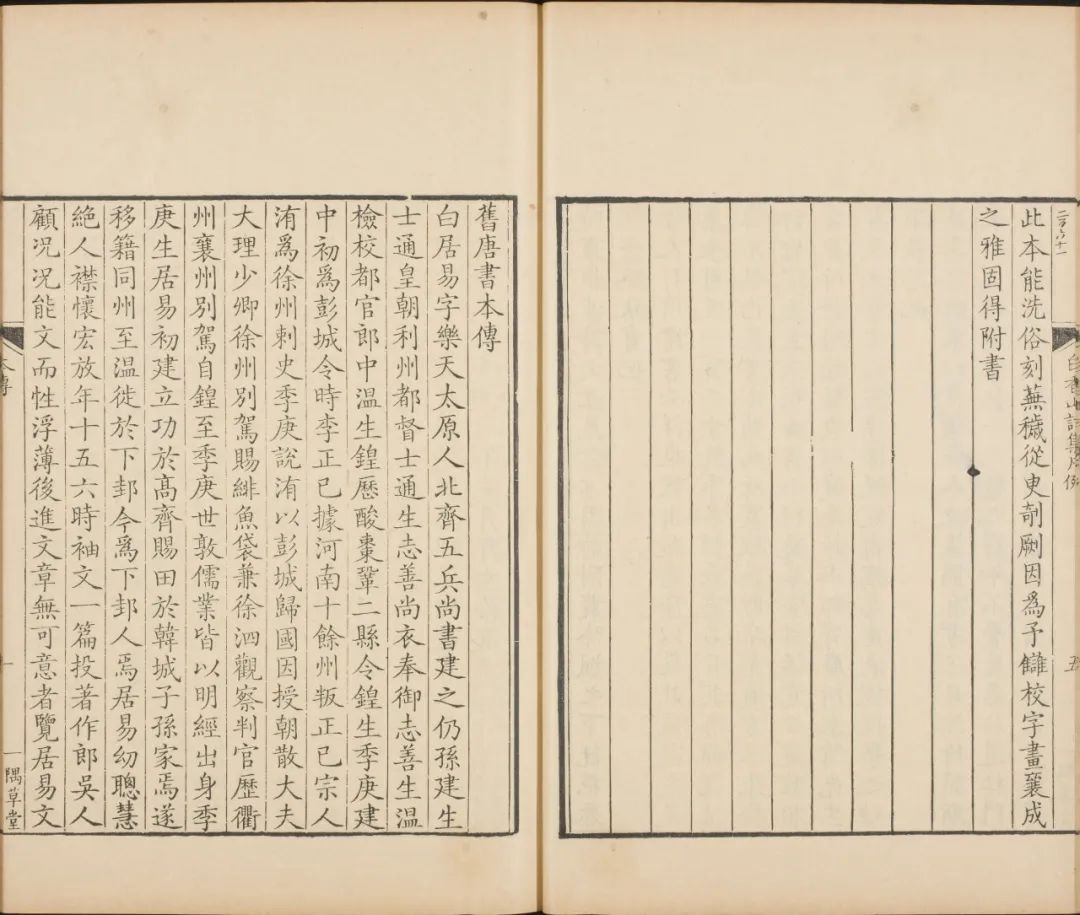 二百六十一
白香山詩集凡例
五
此本能洗俗刻蕪穢從更剞劂因爲予讎校字畫襄成
之雅固得附書
舊唐書本傳
白居易字樂天太原人北齊五兵尚書建之仍孫建生
士通皇朝利州都督士通生志善尚衣奉御志善生温
檢校都官郎中温生鍠歷酸棗鞏二縣令鍠生季庚建
中初爲彭城令時李正已據河南十餘州叛正已宗人
洧爲徐州刺史季庚說洧以彭城歸國因授朝散大夫
大理少卿徐州別駕賜緋魚袋兼徐泗觀察判官歷衢
州襄州別駕自鍠至季庚世敦儒業皆以明經出身季
庚生居易初建立功於高齊賜田於韓城子孫家焉遂
移籍同州至温徙於下邽今爲下邽人焉居易幼聰慧
絶人襟懷宏放年十五六時袖文一篇投著作郎吳人
顧况况能文而性浮薄後進文章無可意者覽居易文
本傳
一
一隅草堂